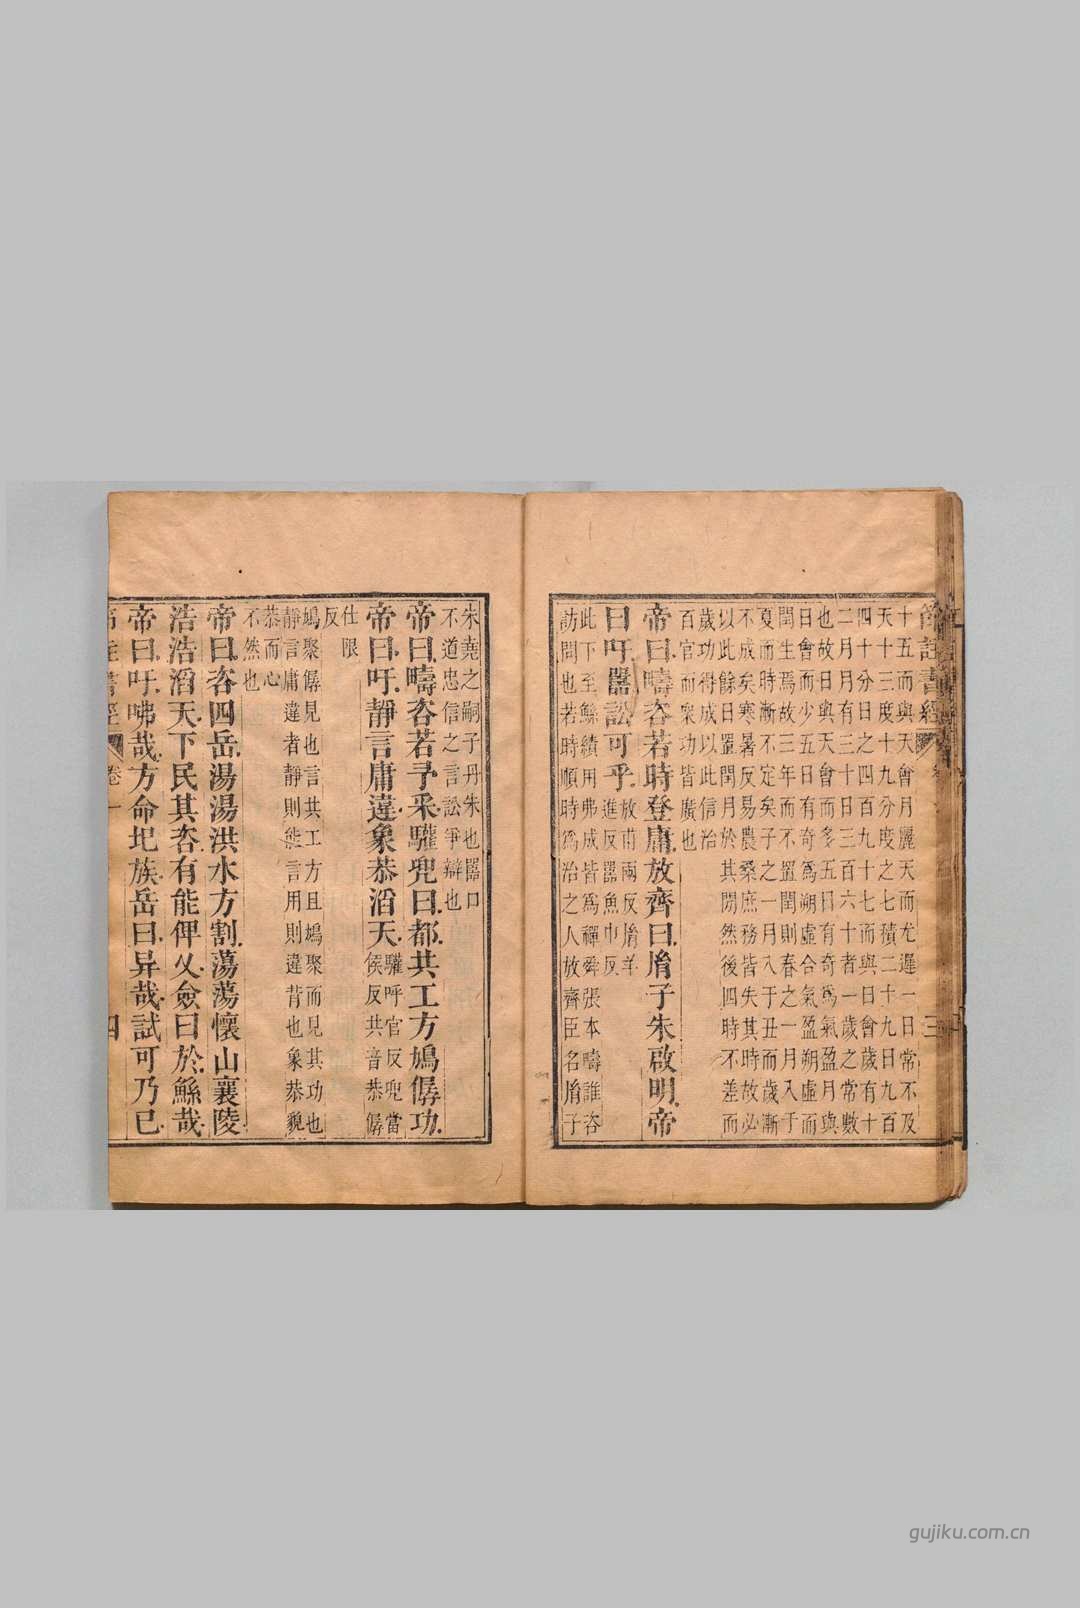 十五而與天會月麗天而尤遲一日常不及
天十三度十九分度之七積二十九日九百
四十分日之四百九十七而與日會歲有十
二月月有三十日三百六十者一歲之常數
也故日與天會而多五日有奇爲氣盈月與
日會而少五日有奇爲朔虛合氣盈朔虛而
閏生焉故三年而不置閏則春之一月入于
夏而時漸不定矣子之一月入于丑而歲漸
不成矣寒暑反易農桑庶務皆失其時故必
以此餘日置閏月於其閒然後四時不差而
歲功得成以此信治
百官而衆功皆廣也
帝曰疇咨若時登庸放齊曰胤子朱啟明帝
曰吁嚚訟可乎
放甫兩反胤羊
進反嚚魚巾反
此下至鯀績用弗成皆爲禪舜張本疇誰咨
訪問也若時順時爲治之人放齊臣名胤子
朱堯之嗣子丹朱也嚚口
不道忠信之言訟爭辯也
帝曰疇咨若予采驩兜曰都共工方鳩僝功
帝曰吁靜言庸違象恭滔天
驩呼官反兜當
侯反共音恭僝
仕限
反
鳩聚僝見也言共工方且鳩聚而見其功也
靜言庸違者靜則能言用則違背也象恭貌
恭而心
不然也
帝曰咨四岳湯湯洪水方割蕩蕩懷山襄陵
浩浩滔天下民其咨有能俾乂僉曰於鯀哉
帝曰吁咈哉方命圮族岳曰异哉試可乃已
卷一
四
三
gujiku.com.cn